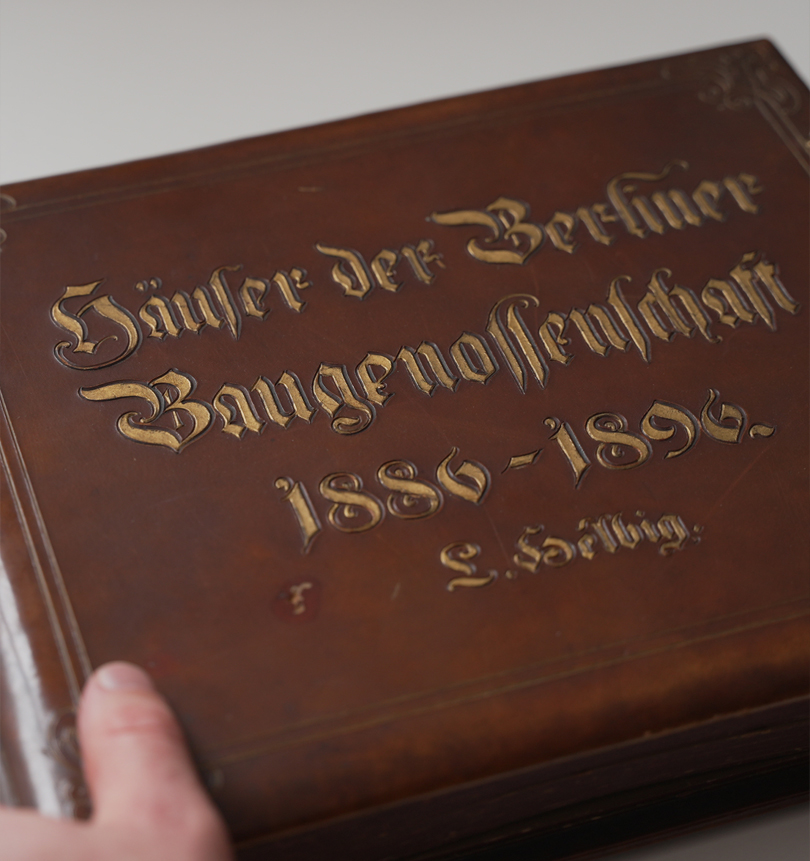 Häuser der Berliner
Baugenossenschaft
1886-1896.
L. Helbig.